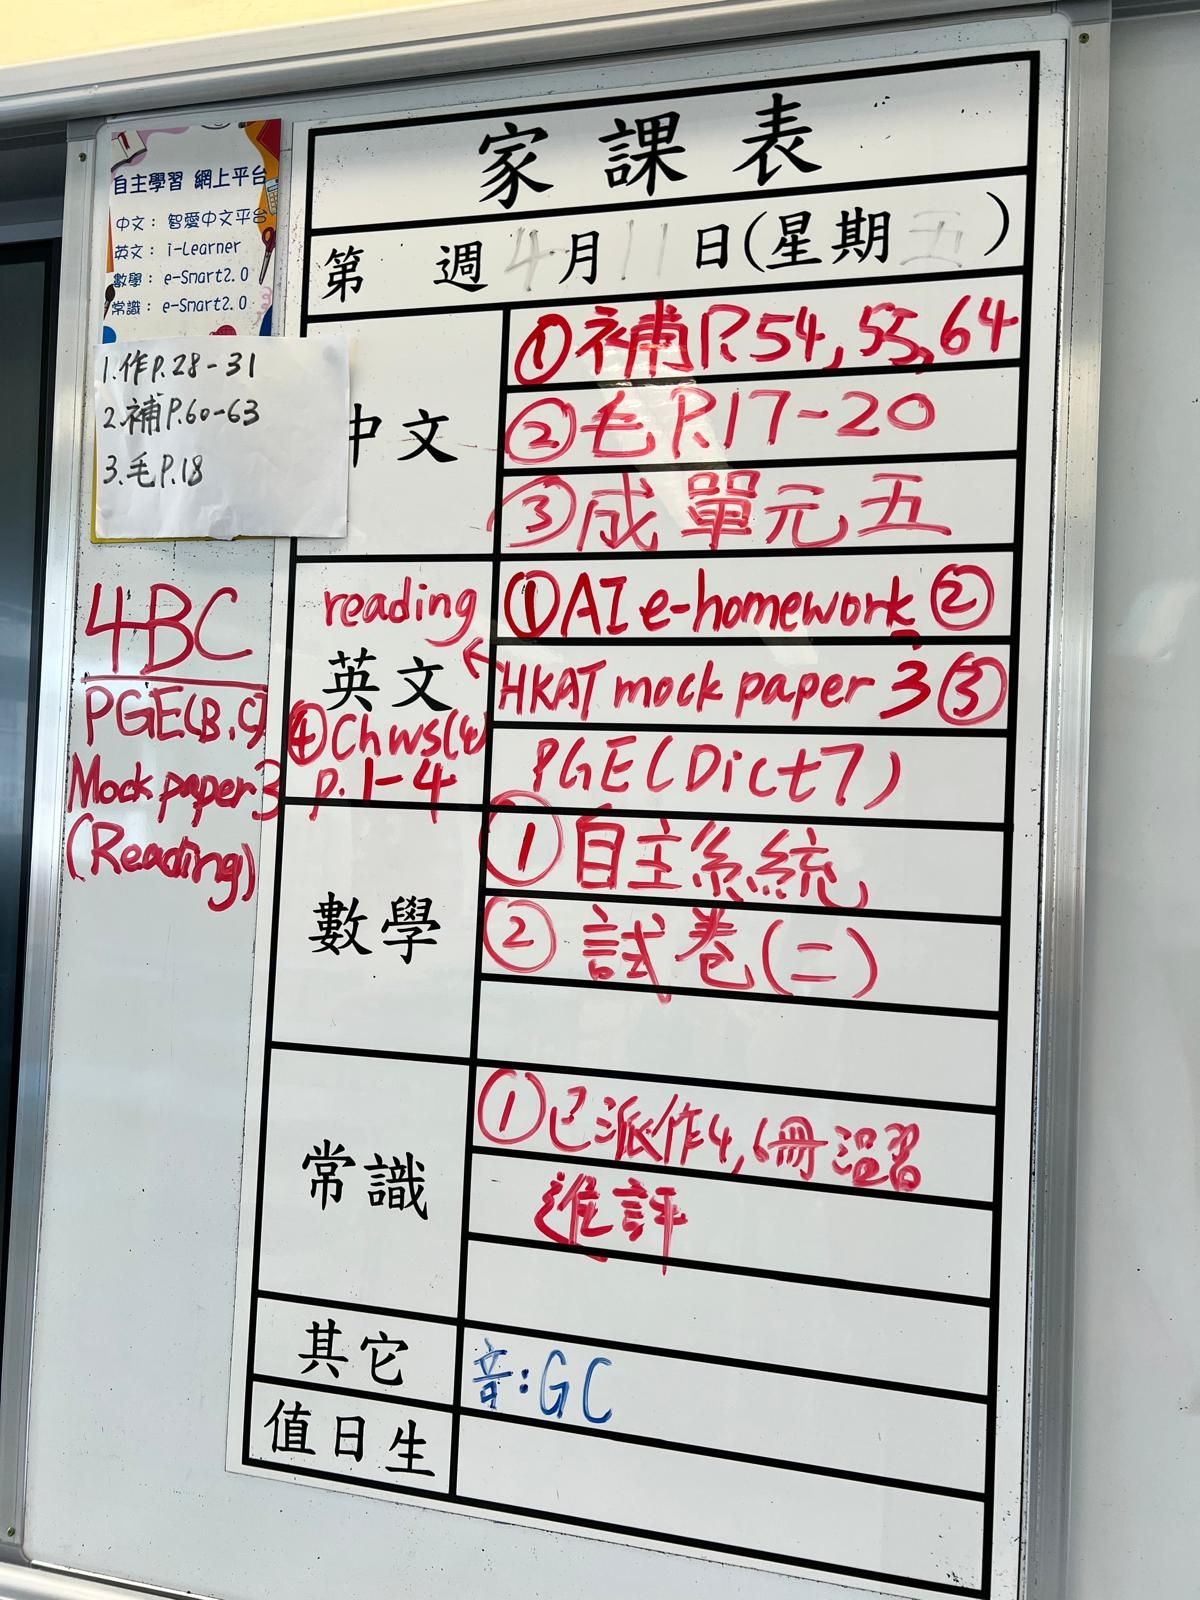 家課表
第 週 4月11日(星期五)
自主學習 網上平台
中文: 智愛中文平台
英文: i-Learner
數學: e-Smart2.0
常識: e-Smart2.0
1.作P.28-31
2.補P.60-63
3.毛P.18
4BC
PGE(B,C)
Mock paper 3
(Reading)
中文
①補P.54,55,64
②毛P.17-20
③成單元五
英文
reading
①AI e-homework ②
HKAT mock paper 3 ③
PGE(Dict7)
④Ch ws(4)
p.1-4
數學
①自主系統
②試卷(二)
常識
①已派作4,6冊溫習
進評
其它
音:GC
值日生